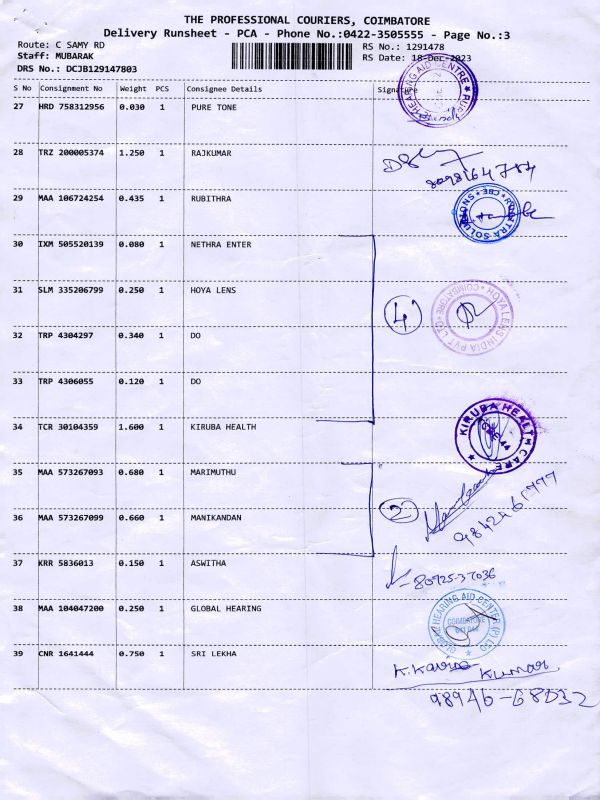 THE PROFESSIONAL COURIERS, COIMBATORE
Delivery Runsheet - PCA - Phone No.:0422-3505555 - Page No.:3
Route: C SAMY RD
RS No.: 1291478
Staff: MUBARAK
RS Date: 18-Dec-2023
DRS No.: DCJB129147803
S No Consignment No Weight PCS Consignee Details Signature
27 HRD 758312956 0.030 1 PURE TONE
HEARING AID CENTRE
28 TRZ 200005374 1.250 1 RAJKUMAR
29 MAA 106724254 0.435 1 RUBITHRA
SOLUTIONS CBE
30 IXM 505520139 0.080 1 NETHRA ENTER
31 SLM 335206799 0.250 1 HOYA LENS
4 HOYA LENS INDIA PVT LTD COIMBATORE
32 TRP 4304297 0.340 1 DO
33 TRP 4306055 0.120 1 DO
34 TCR 30104359 1.600 1 KIRUBA HEALTH
KIRUBA HEALTH CARE CBE-44
35 MAA 573267093 0.680 1 MARIMUTHU
36 MAA 573267099 0.660 1 MANIKANDAN
2
37 KRR 5836013 0.150 1 ASWITHA
80725-37036
38 MAA 104047200 0.250 1 GLOBAL HEARING
GLOBAL HEARING AID CENTER (P) LTD
COIMBATORE
641 044
39 CNR 1641444 0.750 1 SRI LEKHA
Kumar
98946-68032